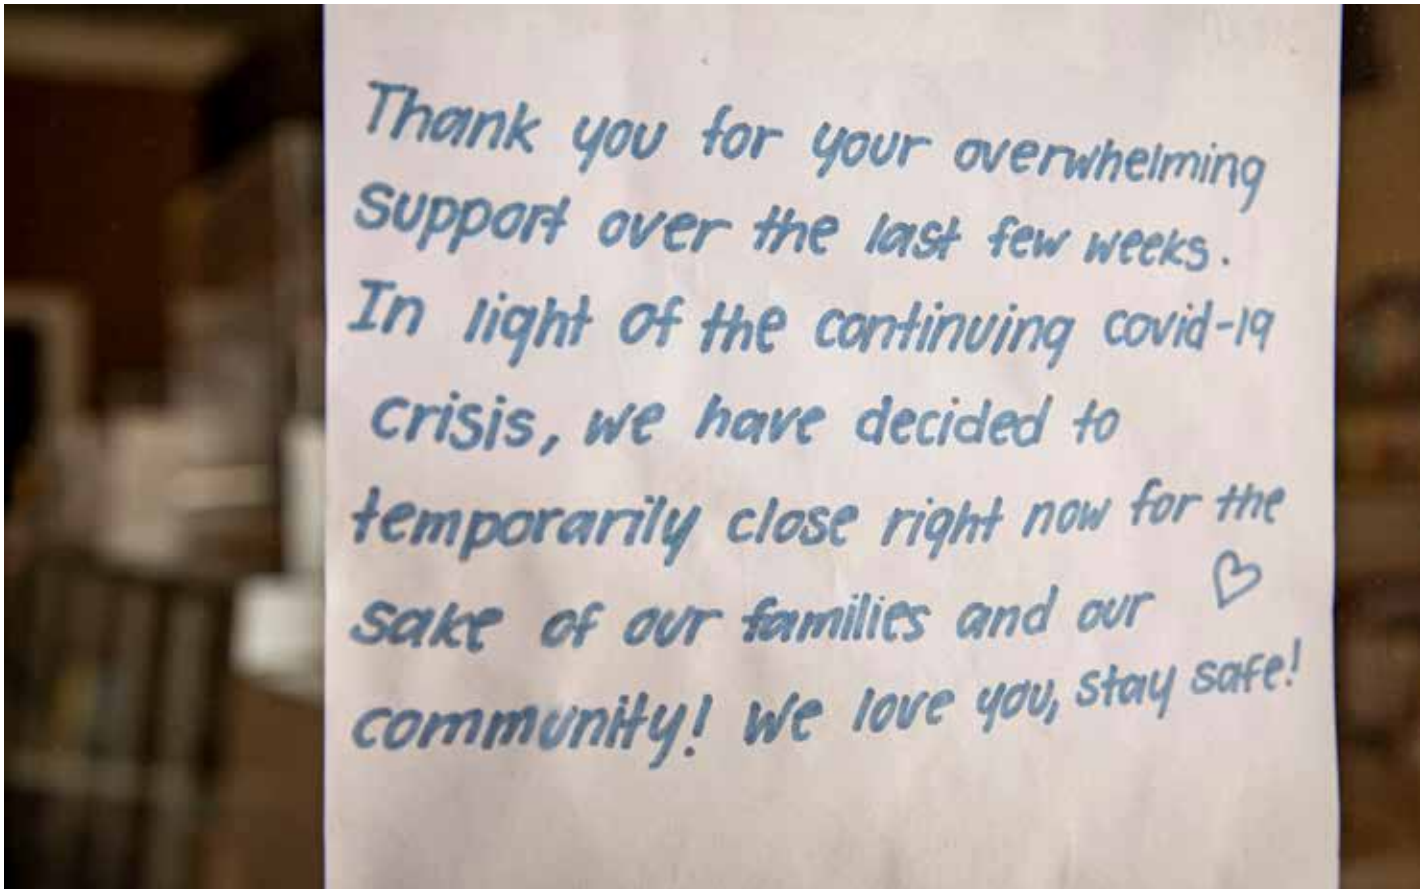 Thank you for your overwhelming
support over the last few weeks.
In light of the continuing covid-19
crisis, we have decided to
temporarily close right now for the
sake of our families and our ♡
community! We love you, stay safe!